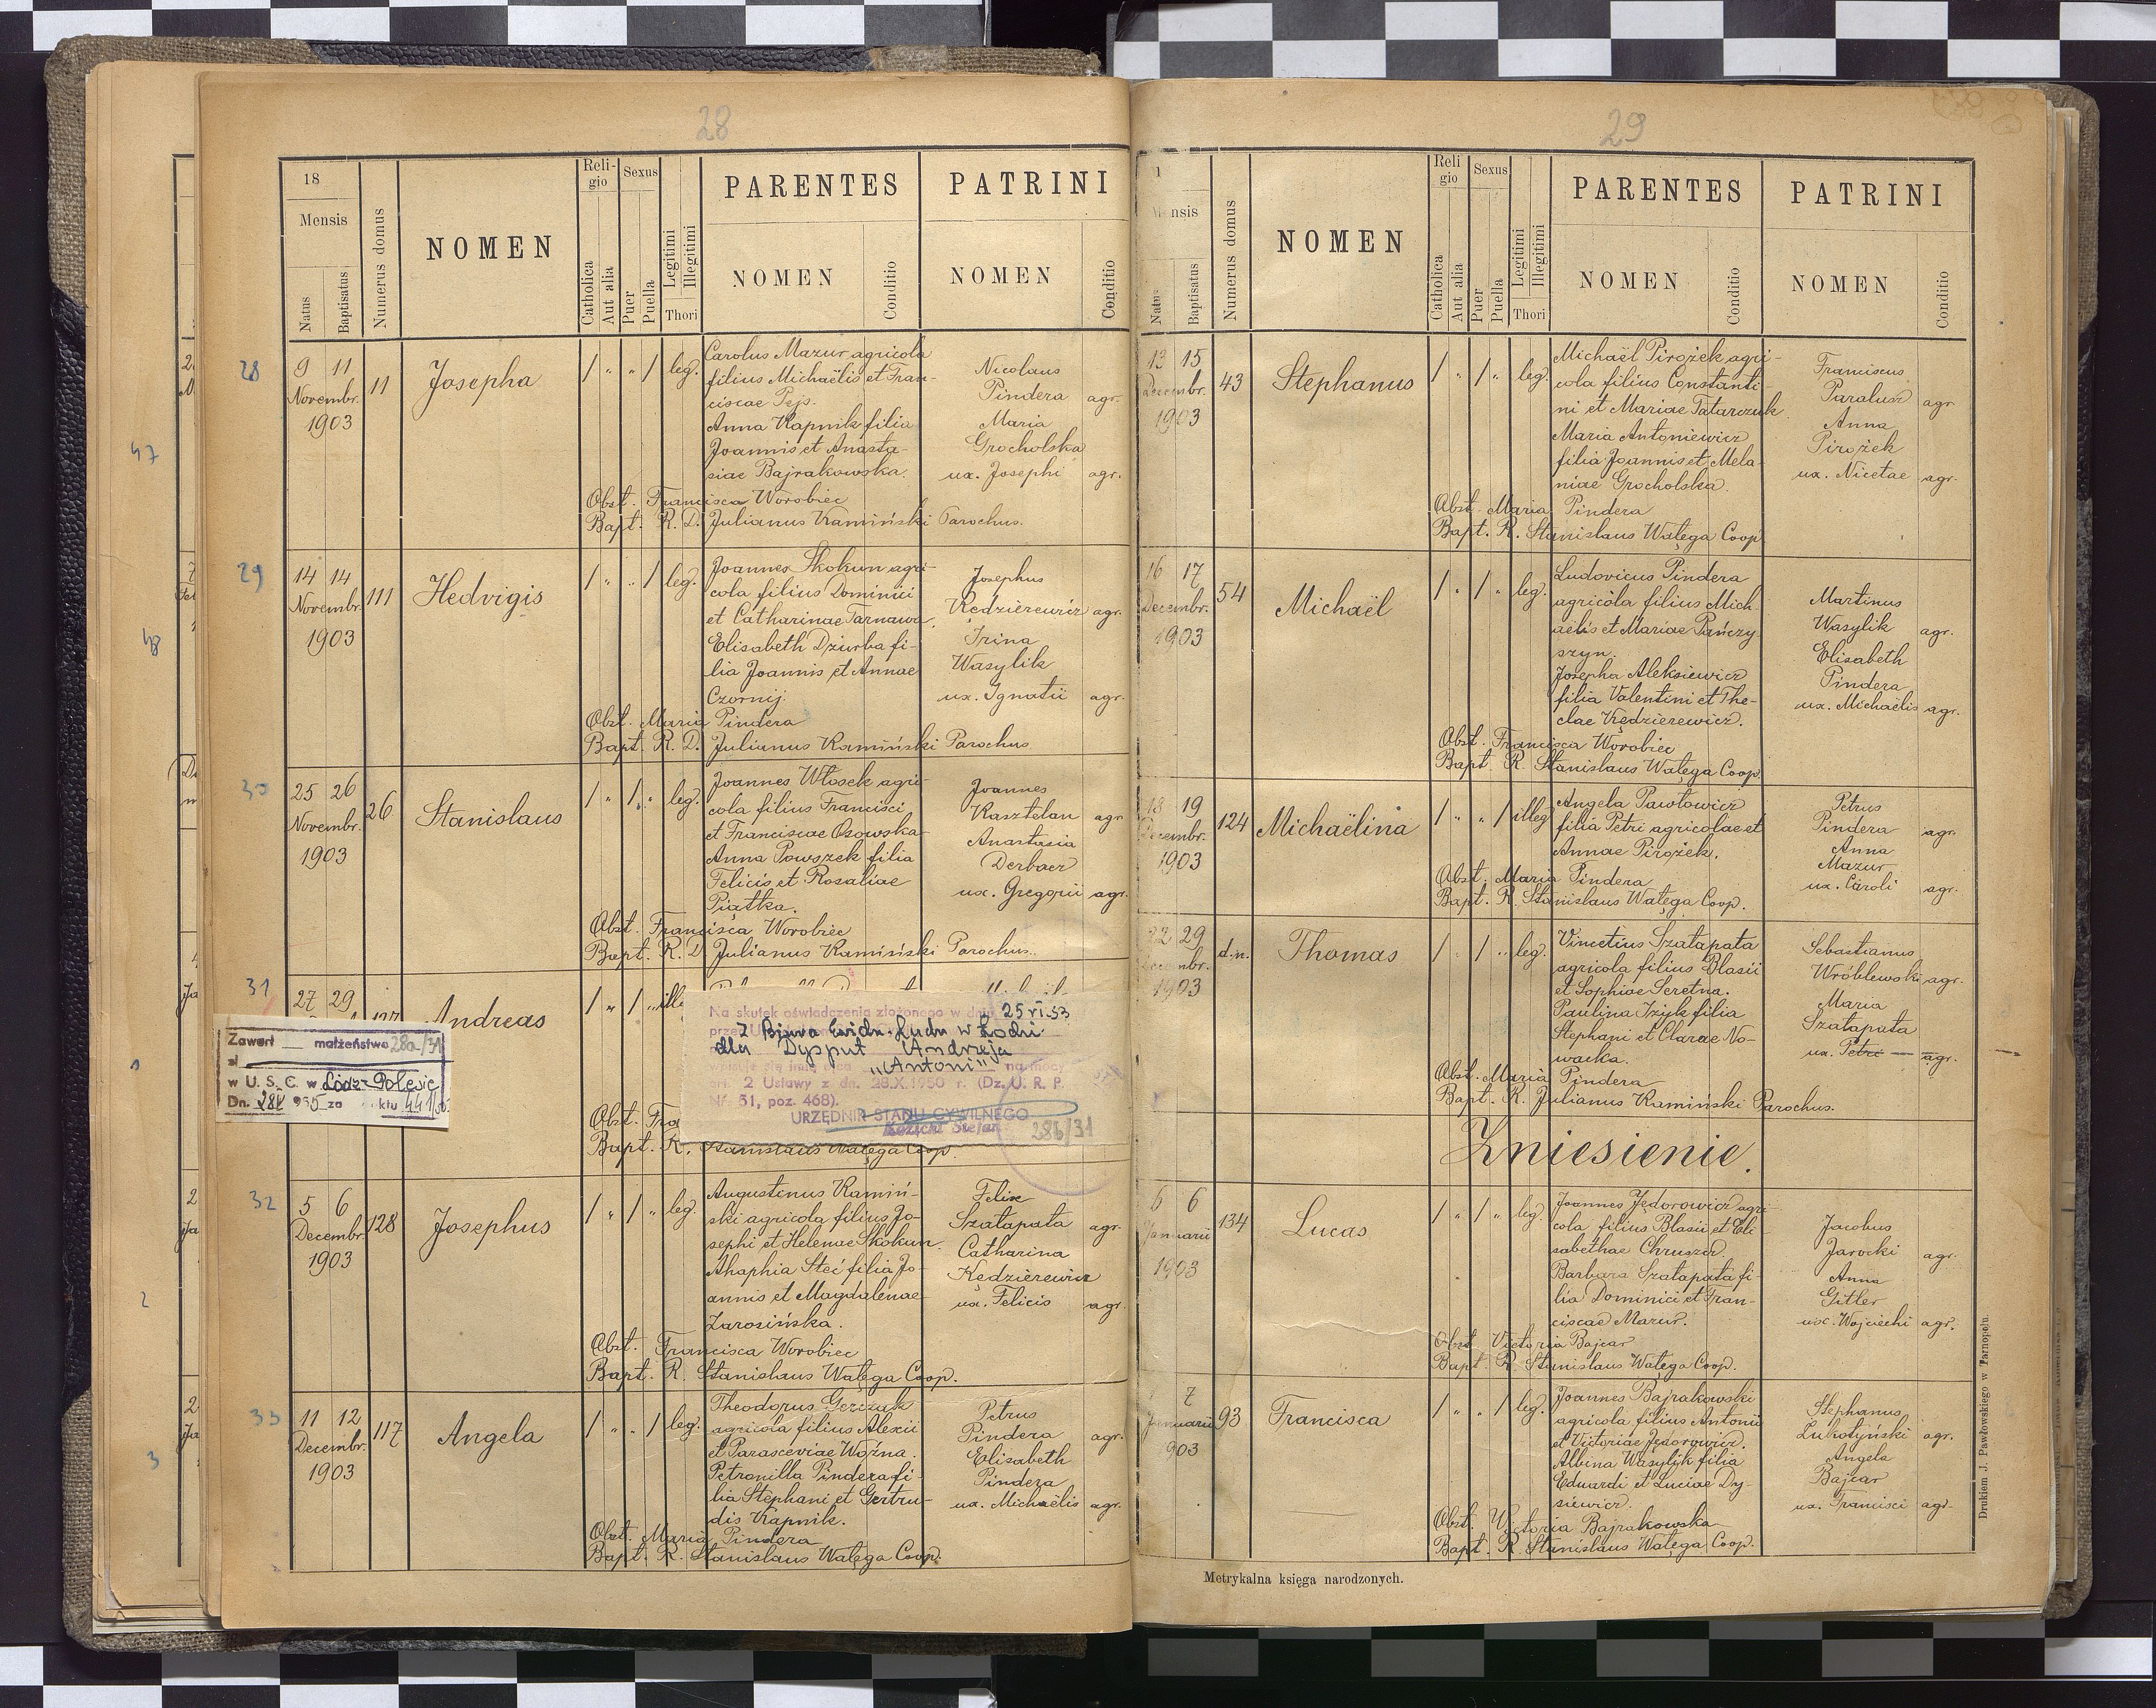 28
18
Mensis
Natus
Baptisatus
Numerus domus
NOMEN
Religio
Catholica
Aut alia
Sexus
Puer
Puella
Legitimi
Illegitimi
Thori
PARENTES
NOMEN
Conditio
PATRINI
NOMEN
Conditio
28
9 11
Novembr.
1903
11
Josepha
/ " " / leg.
Carolus Mazur agricola
filius Michaëlis et Fran-
ciscae Pejs.
Anna Kapnik filia
Joannis et Anasta-
siae Bajrakowska.
Nicolaus
Pindera agr.
Maria
Grocholska
ux. Josephi agr.
Obst. Francisca Worobiec
Bapt. R. D. Julianus Kamiński Parochus.
29
14 14
Novembr.
1903
111
Hedvigis
/ " " / leg.
Joannes Skokun agri-
cola filius Dominici
et Catharinae Tarnawa.
Elisabeth Dziurba fi-
lia Joannis et Annae
Czornij.
Josephus
Kędzierewicz agr.
Irina
Wasylik
ux. Ignatii agr.
Obst. Maria Pindera
Bapt. R. D. Julianus Kamiński Parochus
30
25 26
Novembr.
1903
26
Stanislaus
/ " / " leg.
Joannes Włosek agri-
cola filius Francisci
et Franciscae Osowska
Anna Powszek filia
Felicis et Rosaliae
Piątka.
Joannes
Kasztelan agr.
Anastasia
Derbacz
ux. Gregorii agr.
Obst. Francisca Worobiec
Bapt. R. D. Julianus Kamiński Parochus.
31
27 29
127
Andreas
/ " / " ille
Zawarł — małżeństwo 28a/31
w U. S. C. w Łódź-Polesie
Dn. 955 za aktu 441
Na skutek oświadczenia złożonego w dniu 25 VI 53
przez Z Biura Ewidn. Ludn w Łodzi
dla Dysput Andrzeja
wpisuje się imię ojca "Antoni" na mocy
art. 2 Ustawy z dn. 28.X.1950 r. (Dz. U. R. P.
Nr. 51, poz. 468).
URZĘDNIK STANU CYWILNEGO
28b/31
Obst. Fra
Bapt. R. Stanislaus Wałęga Coop.
32
5 6
Decembr.
1903
128
Josephus
/ " / " leg.
Augustinus Kamiń-
ski agricola filius Jo-
sephi et Helenae Skokun.
Ahaphia Steć filia Jo-
annis et Magdalenae
Zarosińska.
Felix
Szałapata agr.
Catharina
Kędzierewicz
ux. Felicis agr.
Obst. Francisca Worobiec
Bapt. R. Stanislaus Wałęga Coop.
33
11 12
Decembr.
1903
117
Angela
/ " " / leg.
Theodorus Gerczak
agricola filius Alexii
et Parasceviae Woźna.
Petronilla Pindera fi-
lia Stephani et Gertru-
dis Kapnik.
Petrus
Pindera agr.
Elisabeth
Pindera
ux. Michaëlis agr.
Obst. Maria Pindera
Bapt. R. Stanislaus Wałęga Coop.
29
1
Mensis
Natus
Baptisatus
Numerus domus
NOMEN
Religio
Catholica
Aut alia
Sexus
Puer
Puella
Legitimi
Illegitimi
Thori
PARENTES
NOMEN
Conditio
PATRINI
NOMEN
Conditio
13 15
Decembr.
1903
43
Stephanus
/ " / " leg.
Michaël Pirożek agri-
cola filius Constanti-
ni et Mariae Tatarczuk.
Maria Antoniewicz
filia Joannis et Mela-
niae Grocholska.
Franciscus
Paralusz agr.
Anna
Pirożek
ux. Nicetae agr.
Obst. Maria Pindera
Bapt. R. Stanislaus Wałęga Coop.
16 17
Decembr.
1903
54
Michaël
/ " / " leg.
Ludovicus Pindera
agricola filius Mich-
aëlis et Mariae Pańczy-
szyn.
Josepha Aleksiewicz
filia Valentini et The-
clae Kędzierewicz.
Martinus
Wasylik agr.
Elisabeth
Pindera
ux. Michaëlis agr.
Obst. Francisca Worobiec
Bapt. R. Stanislaus Wałęga Coop.
18 19
Decembr.
1903
124
Michaëlina
/ " " / illeg.
Angela Pawłowicz
filia Petri agricolae et
Annae Pirożek.
Petrus
Pindera agr.
Anna
Mazur
ux. Caroli agr.
Obst. Maria Pindera
Bapt. R. Stanislaus Wałęga Coop.
22 29
Decembr.
1903
d.n.
Thomas
/ " / " leg.
Vincetius Szałapata
agricola filius Blasii
et Sophiae Seretna.
Paulina Iżyk filia
Stephani et Clarae No-
wacka.
Sebastianus
Wróblewski agr.
Maria
Szałapata
ux. Petri — agr.
Obst. Maria Pindera
Bapt. R. Julianus Kamiński Parochus.
Zniesienie.
6 6
Januarii
1903
134
Lucas
/ " / " leg.
Joannes Jędorowicz agri-
cola filius Blasii et Eli-
sabethae Chruszcz.
Barbara Szałapata fi-
lia Dominici et Fran-
ciscae Mazur.
Jacobus
Jarocki agr.
Anna
Gitler
ux. Wojciechi agr.
Obst. Victoria Bajcar
Bapt. R. Stanislaus Wałęga Coop.
7
Januarii
903
93
Francisca
/ " " / leg.
Joannes Bajrakowski
agricola filius Antonii
et Victoriae Jędorowicz.
Albina Wasylyk filia
Eduardi et Luciae Dy-
siewicz.
Stephanus
Lukotyński agr.
Angela
Bajcar
ux. Francisci agr.
Obst. Victoria Bajrakowska
Bapt. R. Stanislaus Wałęga Coop.
Metrykalna księga narodzonych.
Drukiem J. Pawłowskiego w Tarnopolu.